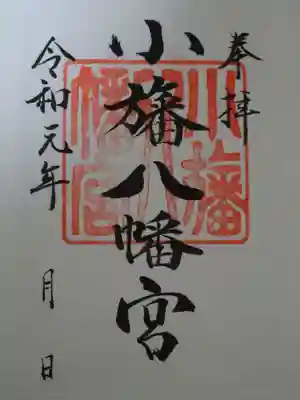 奉拝
小旛八幡宮
令和元年 月 日
小旛八幡宮